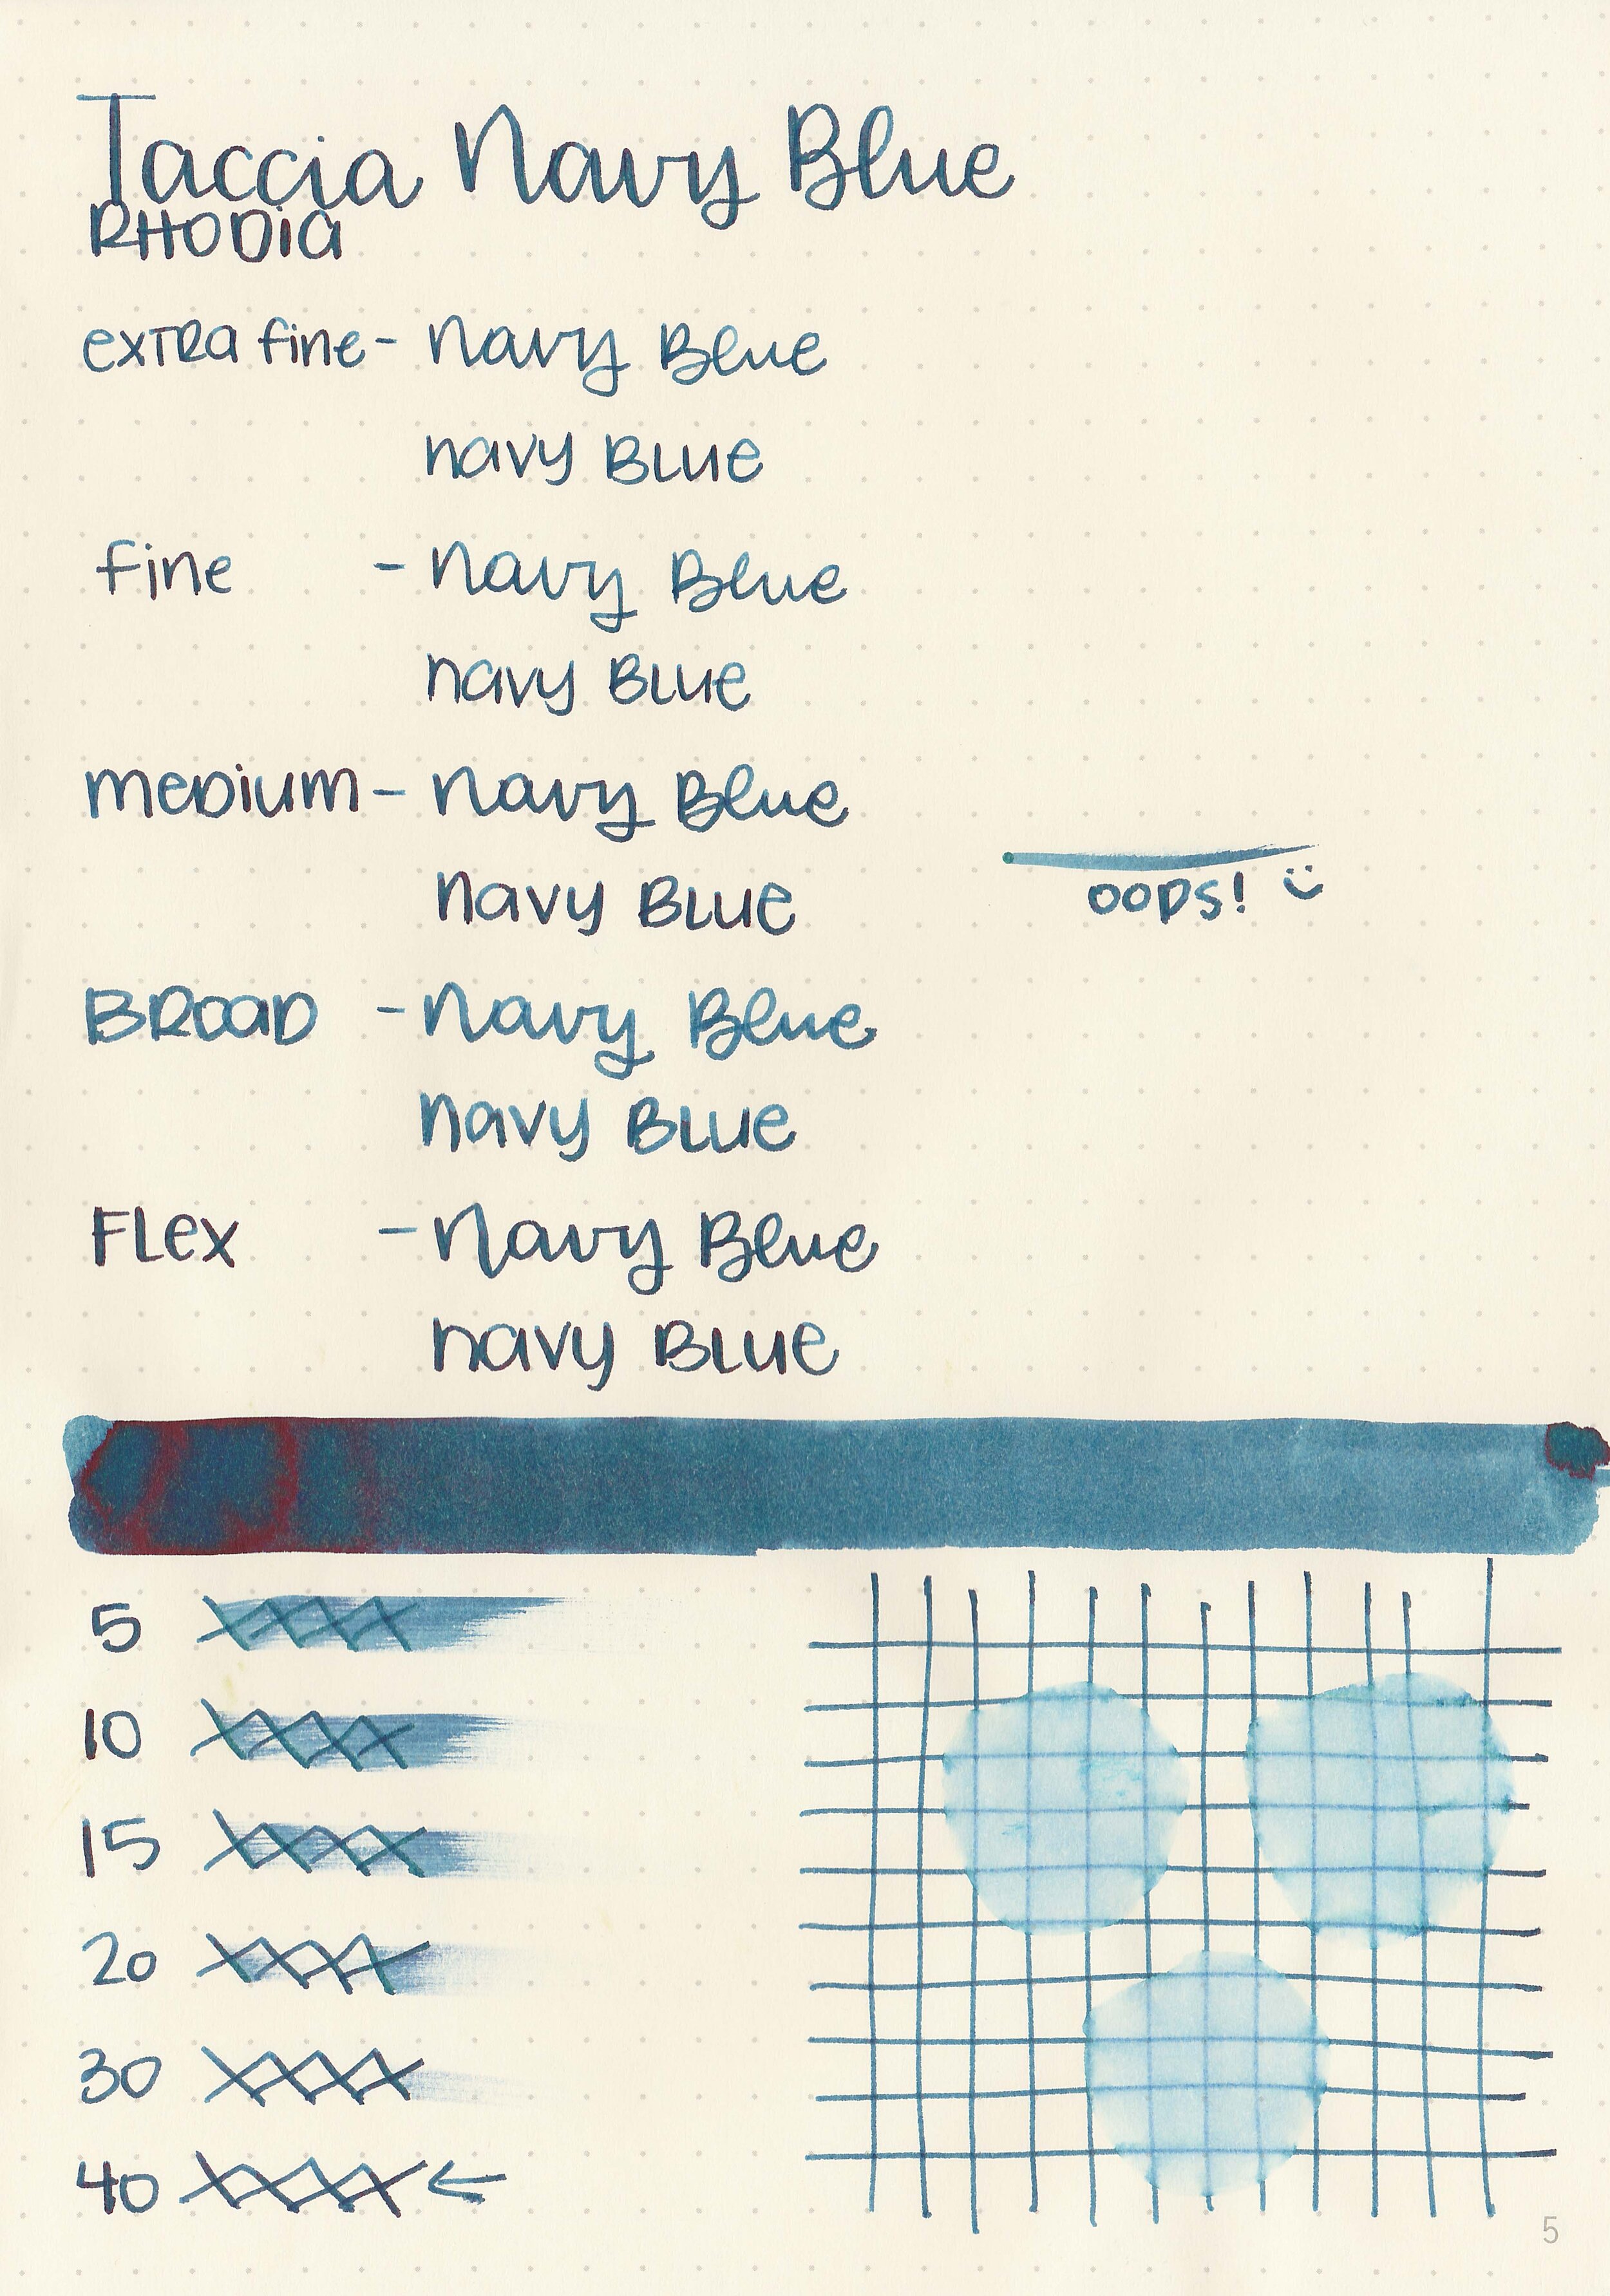 Taccia Navy Blue
RHODia
exTRa fine - navy Blue
navy BLue
fine - navy Blue
navy BLue
meDium - navy Blue
oops! :)
navy BLue
BRoaD - navy Blue
navy BLue
FLex - navy Blue
navy BLue
5
10
15
20
30
40 ←
5